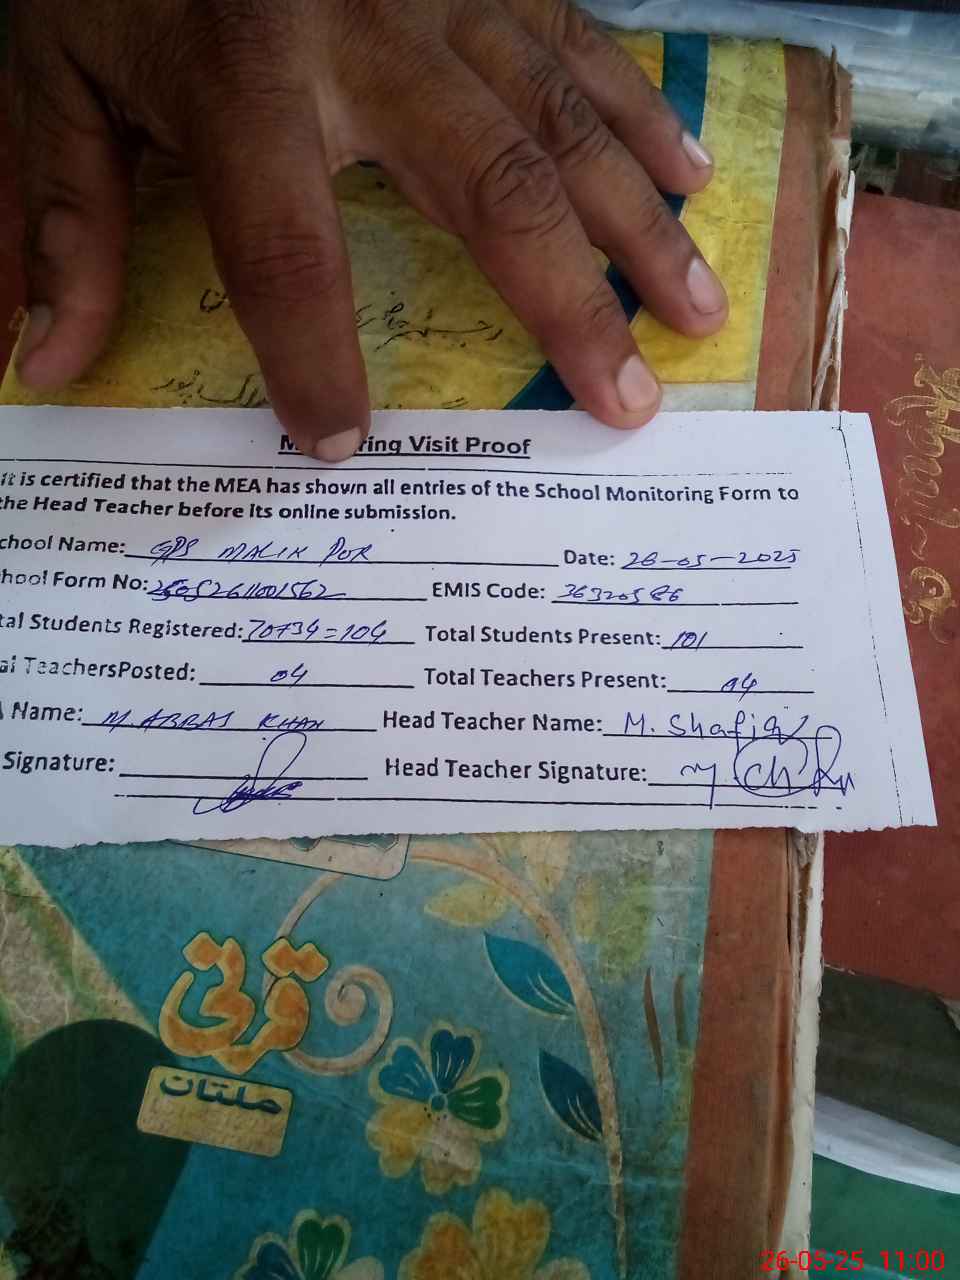 رجسٹر حاضری
Visit Proof
It is certified that the MEA has shown all entries of the School Monitoring Form to
the Head Teacher before its online submission.
chool Name: GPS MALIK PUR Date: 26-05-2025
hool Form No: EMIS Code: 36320586
tal Students Registered: 70+34=104 Total Students Present: 101
al TeachersPosted: 04 Total Teachers Present: 04
Name: M. ABBAS KHAN Head Teacher Name: M. Shafiq
Signature: Head Teacher Signature:
قرتی
ملتان
26-05-25 11:00